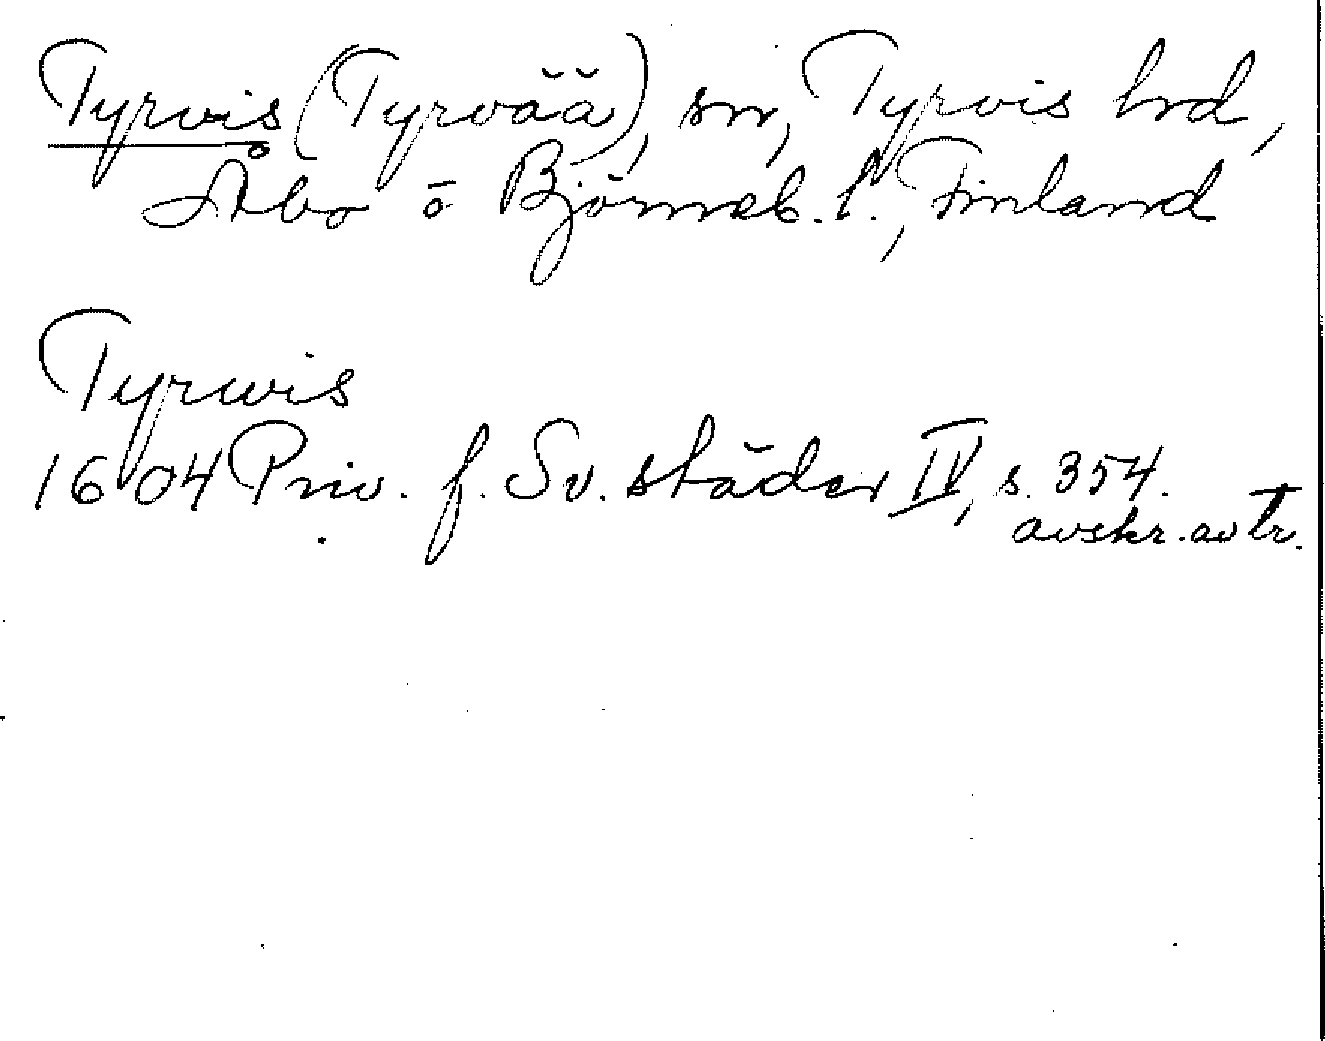 Tyrvis (Tyrvää), sn, Tyrvis hd,
Åbo o Björneb. l., Finland
Tyrwis
1604 Priv. f. Sv. städer IV, s. 354.
avskr. av tr.